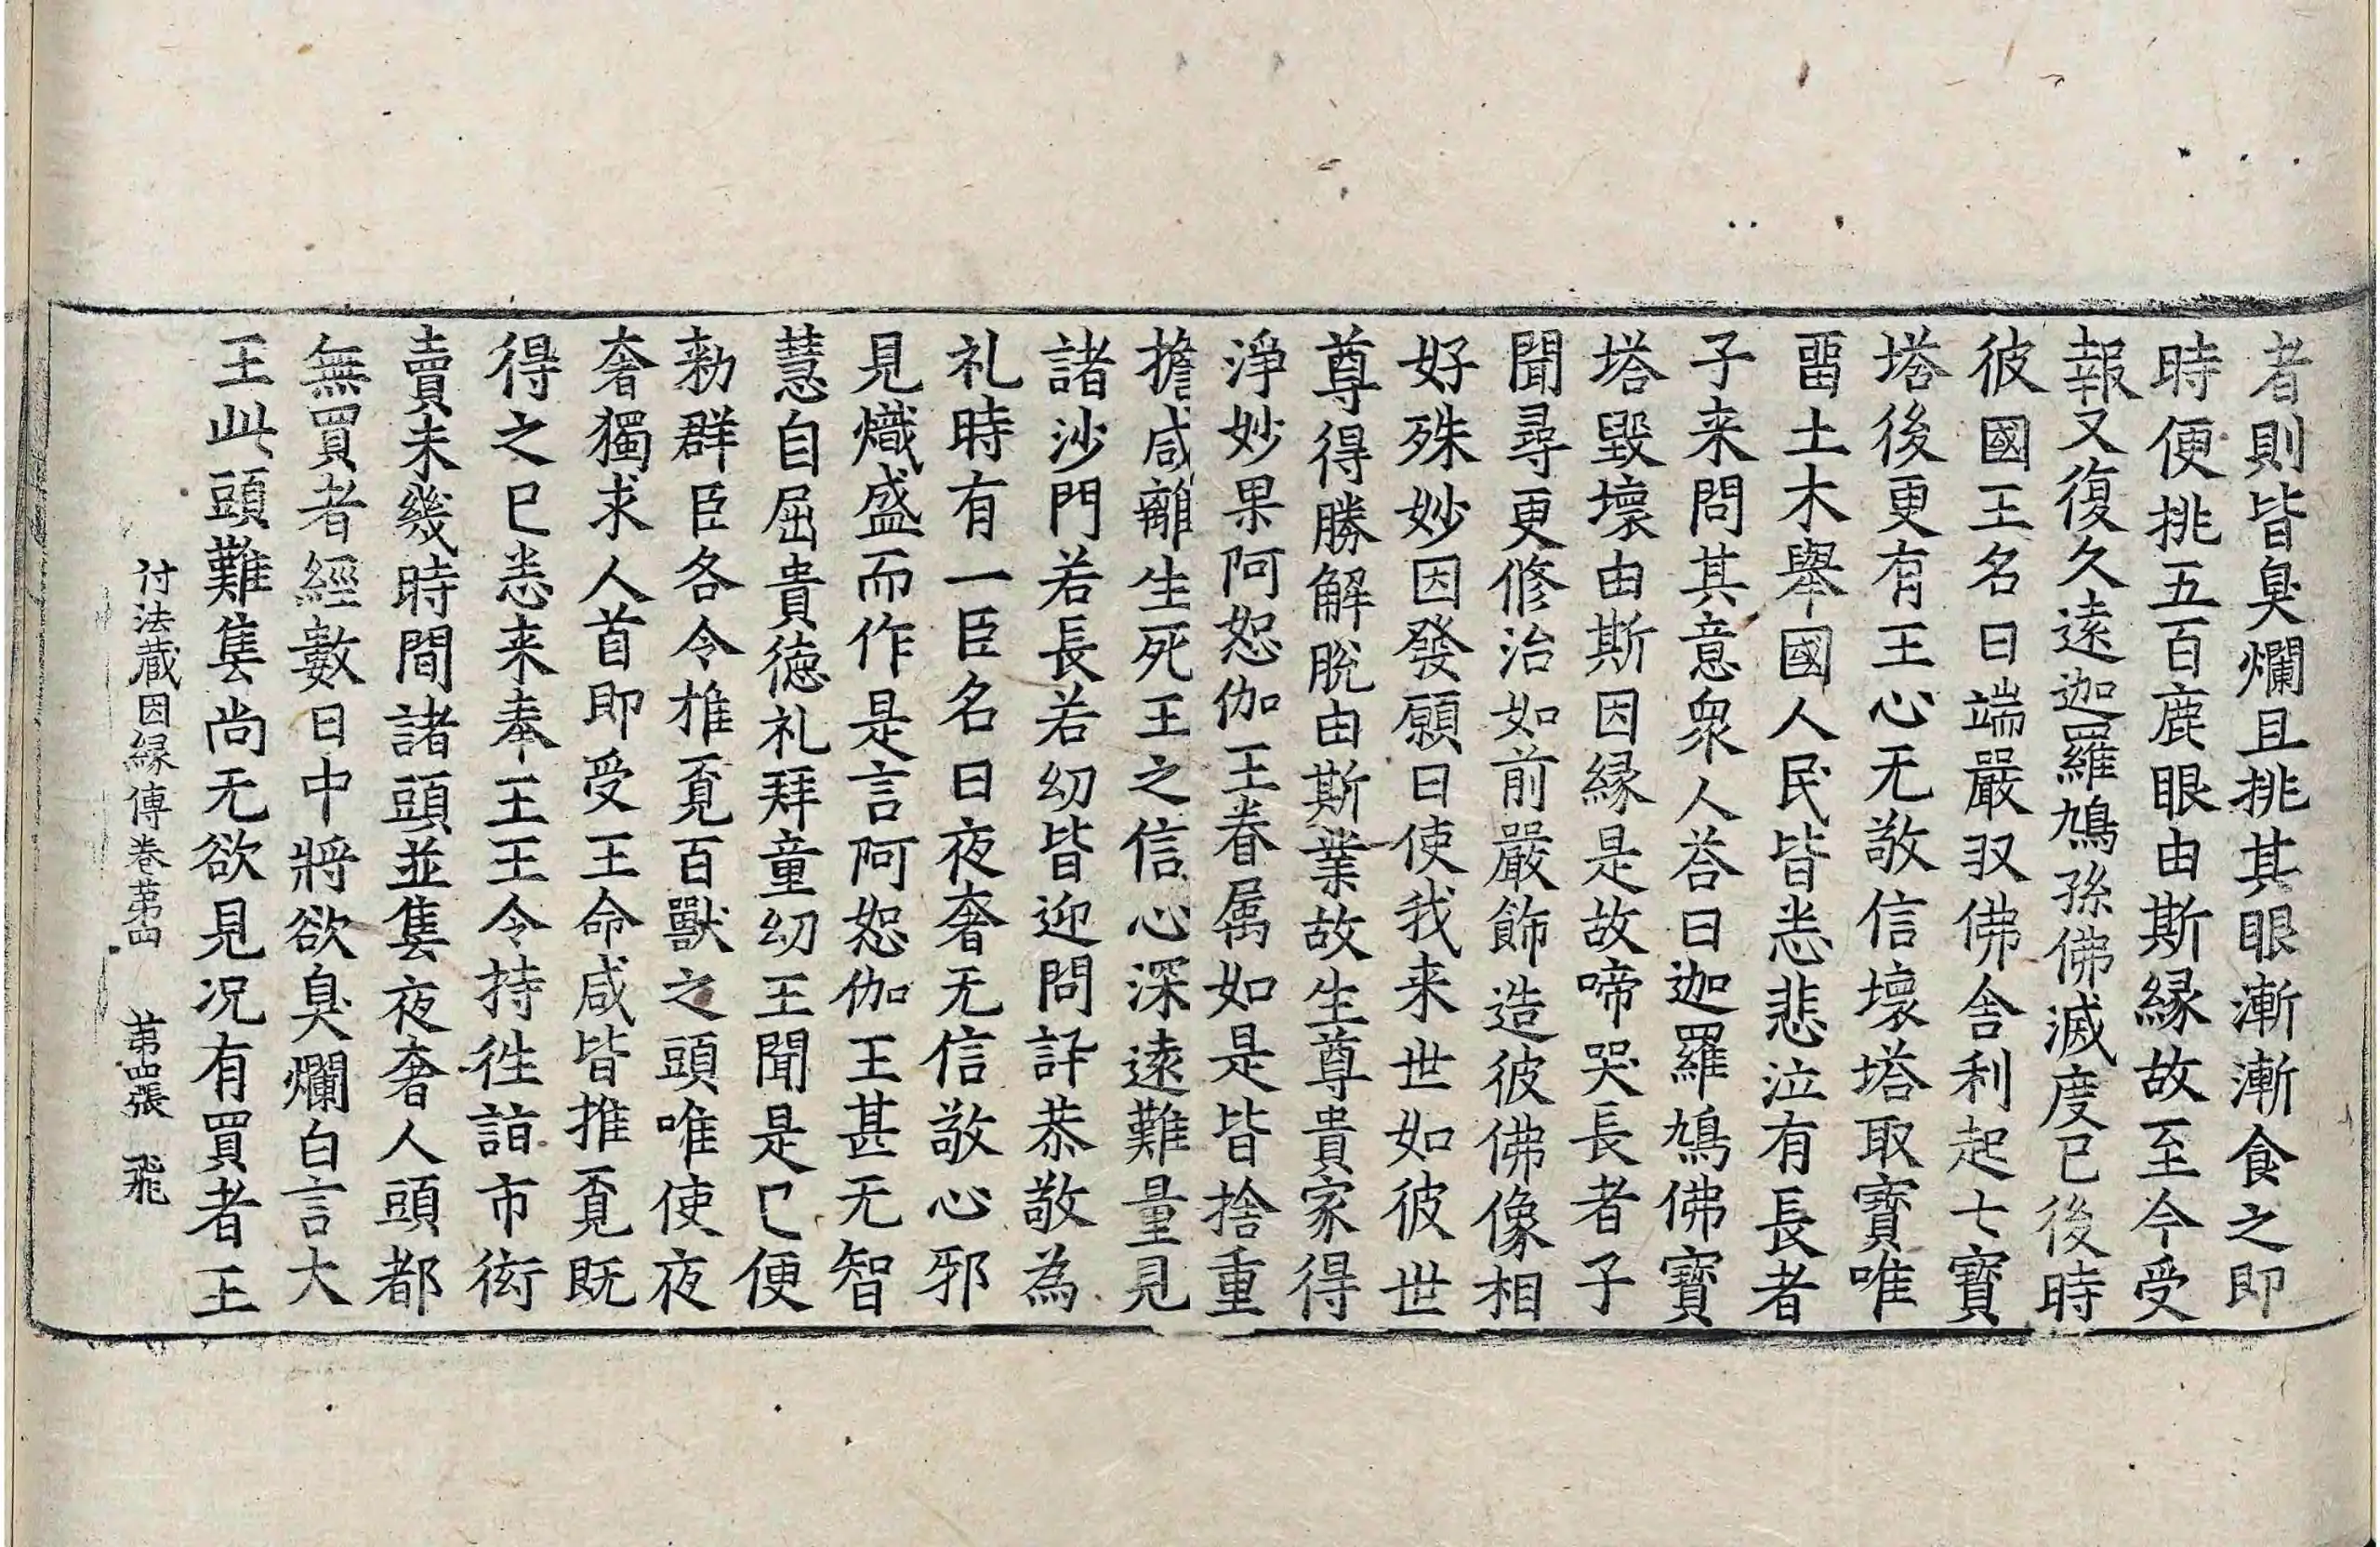 者則皆臭爛且挑其眼漸漸食之即
時便挑五百鹿眼由斯緣故至今受
報又復久遠迦羅鳩孫佛滅度已後時
彼國王名曰端嚴収佛舍利起七寶
塔後更有王心无敬信壞塔取寶唯
畱土木舉國人民皆悉悲泣有長者
子来問其意衆人荅曰迦羅鳩佛寶
塔毀壞由斯因緣是故啼哭長者子
聞尋更修治如前嚴飾造彼佛像相
好殊妙因發願曰使我来世如彼世
尊得勝解脫由斯業故生尊貴家得
淨妙果阿恕伽王眷属如是皆捨重
擔咸離生死王之信心深遠難量見
諸沙門若長若幼皆迎問訊恭敬為
礼時有一臣名曰夜奢无信敬心邪
見熾盛而作是言阿恕伽王甚无智
慧自屈貴德礼拜童幼王聞是已便
勑群臣各令推覓百獸之頭唯使夜
奢獨求人首即受王命咸皆推覓既
得之已悉来奉王王令持往詣市衒
賣未幾時間諸頭並售夜奢人頭都
無買者經數日中將欲臭爛白言大
王此頭難售尚无欲見况有買者王
付法蔵因緣傳卷苐四　苐四張　飛